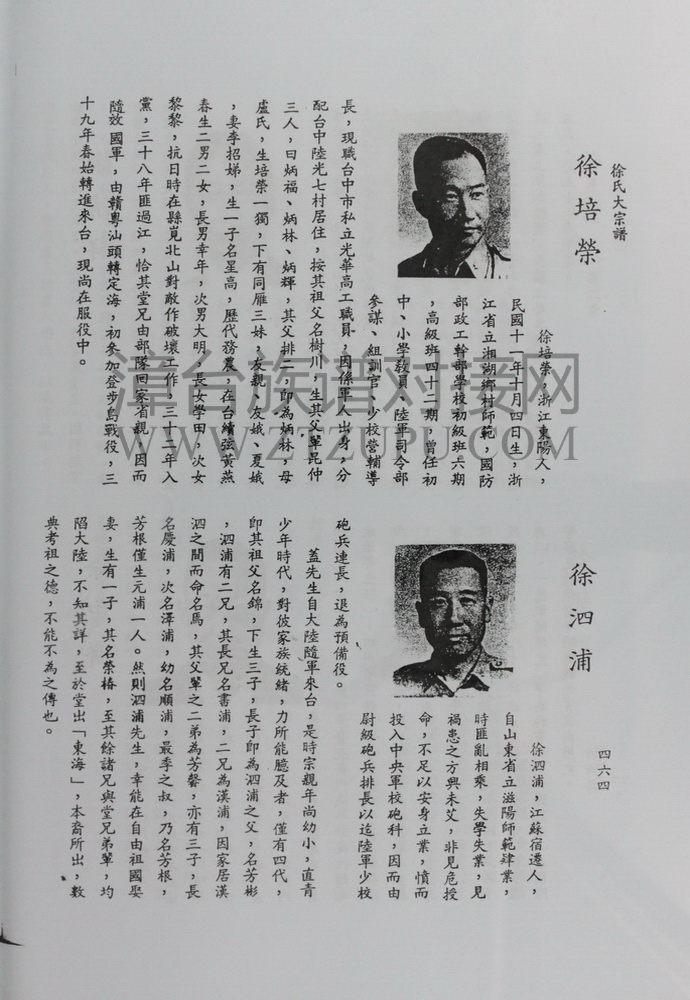 徐氏大宗譜
徐培榮
徐培榮，浙江東陽人，
民國十一年十月四日生，浙
江省立湘湖鄉村師範，國防
部政工幹部學校初級班六期
，高級班四十二期，曾任初
中、小學教員、陸軍司令部
參謀、組訓官、少校營輔導
長，現職台中市私立光華高工職員，因係軍人出身，分
配台中陸光七村居住，按其祖父名樹川，生其父輩昆仲
三人，曰炳福、炳林、炳輝，其父排二，即為炳林，母
盧氏，生培榮一獨，下有同雁三妹，友親、友娥、夏娥
，妻李招娣，生一子名星高，歷代務農，在台續弦黃燕
春生二男二女，長男幸年，次男大明，長女學田，次女
黎黎，抗日時在縣嵬北山對敵作破壞工作，三十二年入
黨，三十八年匪過江，恰其堂兄由部隊回家省親，因而
隨效國軍，由贛粵汕頭轉定海，初參加登步島戰役，三
十九年春始轉進來台，現尚在服役中。
四六四
徐泗浦
徐泗浦，江蘇宿遷人，
自山東省立滋陽師範肄業，
時匪亂相乘，失學失業，見
禍患之方興未艾，非見危授
命，不足以安身立業，憤而
投入中央軍校砲科，因而由
尉級砲兵排長以迄陸軍少校
砲兵連長，退為預備役。
蓋先生自大陸隨軍來台，是時宗親年尚幼小，直青
少年時代，對彼家族統緒，力所能臆及者，僅有四代，
即其祖父名錦，下生三子，長子即為泗浦之父，名芳彬
，泗浦有二兄，其長兄名書浦，二兄為漢浦，因家居漢
泗之間而命名焉，其父輩之二弟為芳馨，亦有三子，長
名慶浦，次名澤浦，幼名順浦，最季之叔，乃名芳根，
芳根僅生元浦一人。然則泗浦先生，幸能在自由祖國娶
妻，生有一子，其名榮椿，至其餘諸兄與堂兄弟輩，均
陷大陸，不知其詳，至於堂出「東海」，本裔所出，數
典考祖之德，不能不為之傳也。
漳台族谱对接网
WWW.ZTZUPU.COM